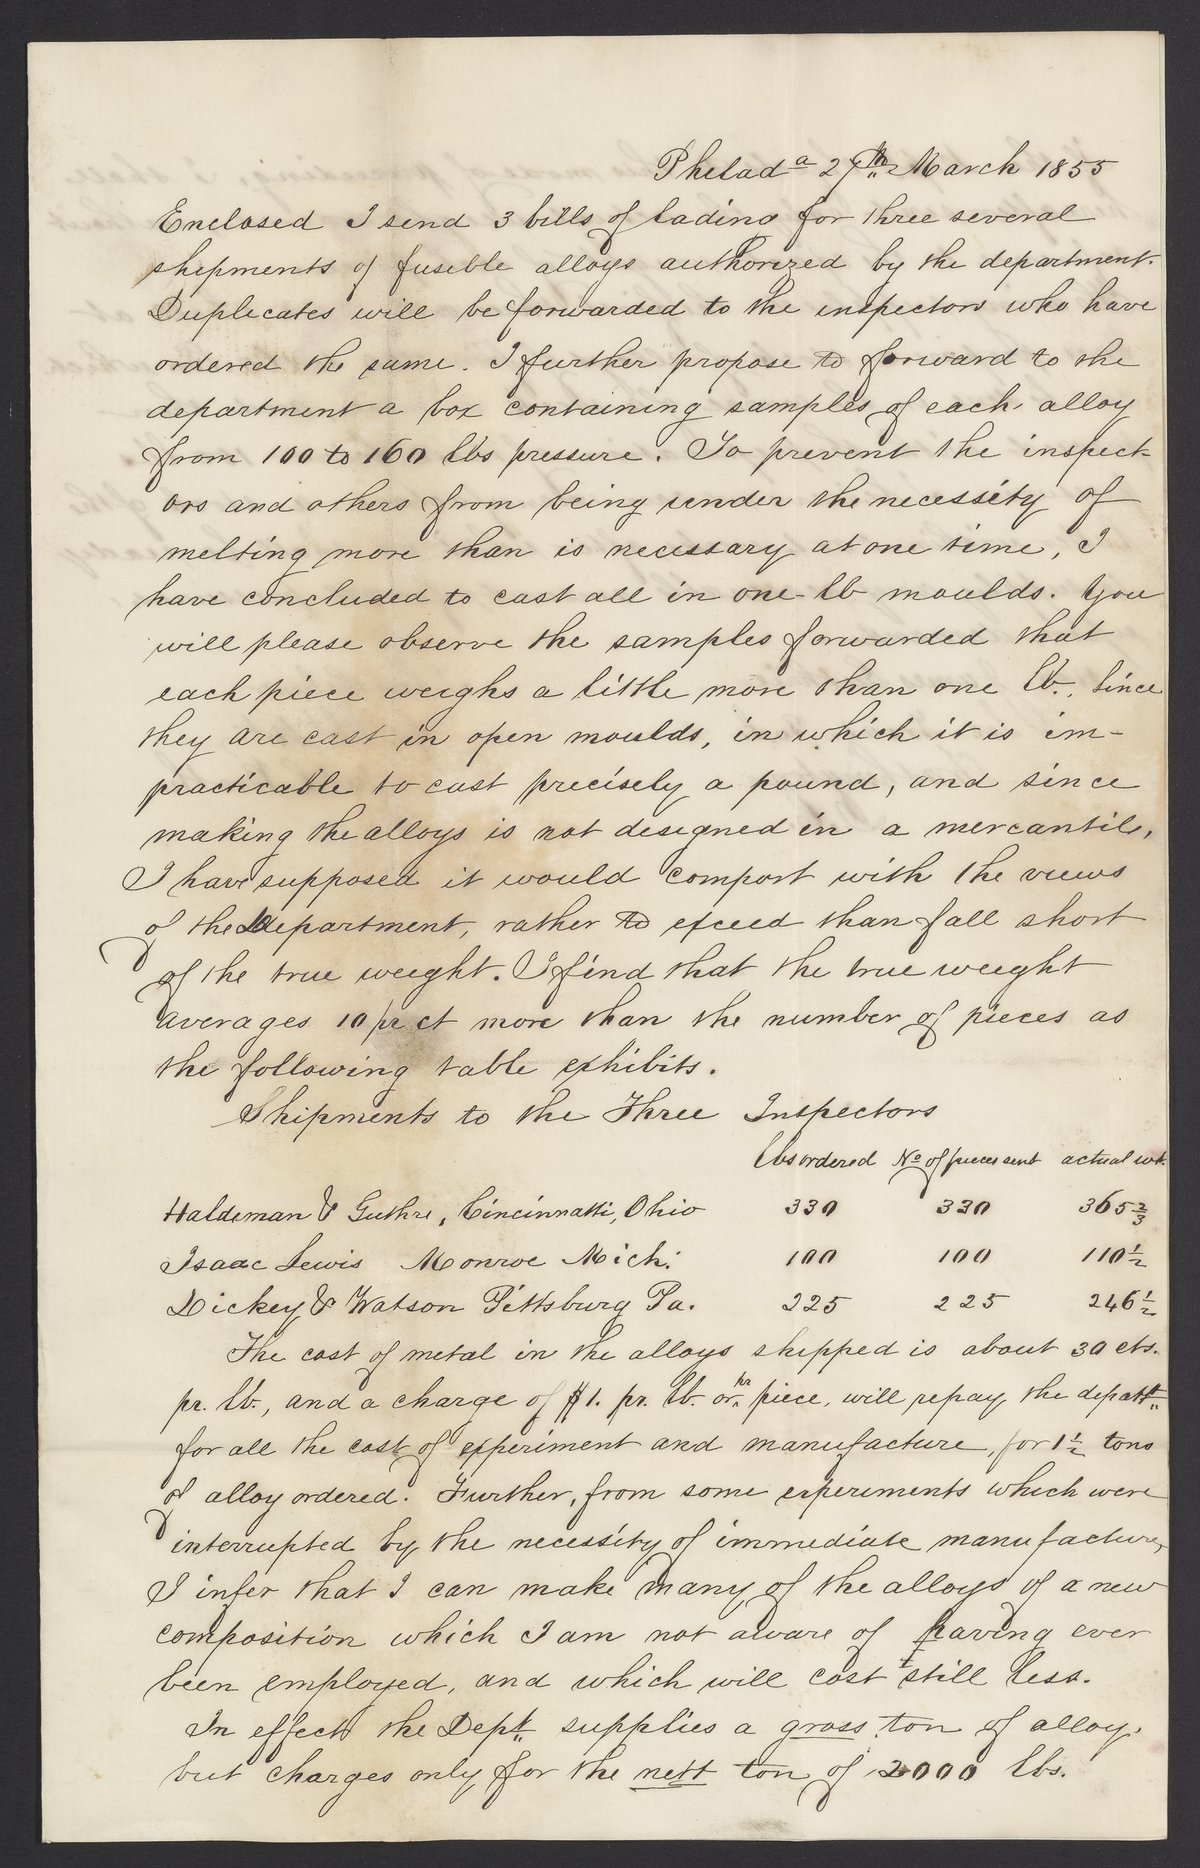 Philad a 27th March 1855
Enclosed I send 3 bills of lading for three several
shipments of fusible alloys authorized by the department.
Duplicates will be forwarded to the inspectors who have
ordered the same. I further propose to forward to the
department a box containing samples of each alloy
from 100 to 160 lbs pressure. To prevent the inspect-
ors and others from being under the necessity of
melting more than is necessary at one time, I
have concluded to cast all in one lb moulds. You
will please observe the samples forwarded that
each piece weighs a little more than one lb. Since
they are cast in open moulds, in which it is im-
practicable to cast precisely a pound, and since
making the alloys is not designed in a mercantile,
I have supposed it would comport with the views
of the Department, rather to exceed than fall short
of the true weight. I find that the true weight
averages 10 pr ct more than the number of pieces as
the following table exhibits.
Shipments to the Three Inspectors
lbs ordered No of pieces sent actual wt.
Haldeman & Guthre, Cincinnatti, Ohio 330 330 365 2/3
Isaac Lewis Monroe Mich: 100 100 110 1/2
Dickey & Watson Pittsburg Pa. 225 225 246 1/2
The cost of metal in the alloys shipped is about 30 cts.
pr. lb, and a charge of $1. pr. lb. or pr piece, will repay the depatt
for all the cost of experiment and manufacture, for 1 1/2 tons
of alloy ordered. Further, from some experiments which were
interrupted by the necessity of immediate manufacture,
I infer that I can make many of the alloys of a new
composition which I am not aware of having ever
been employed, and which will cost still less.
In effect the Dept supplies a gross ton of alloy.
but charges only for the nett ton of 2000 lbs.